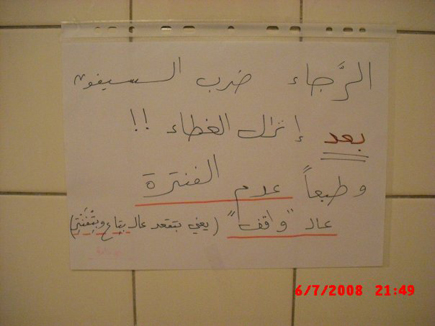 الرَّجاء ضرب السيفون
بعد إنزال الغطاء !!
و طبعاً عدم الفنترة
عال "واقف" (يعني بتقعد عال بتاع وبتفنتر)
6/7/2008 21:49